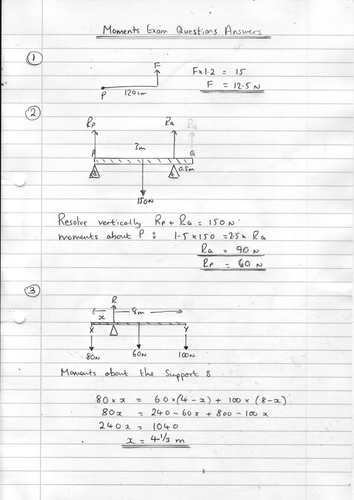 Moments Exam Questions Answers
1
F
P
120cm
F x 1.2 = 15
F = 12.5 N
2
Rp RQ RQ
P 3m Q
0.5m
150N
Resolve vertically Rp + RQ = 150 N.
moments about P : 1.5 x 150 = 2.5 x RQ
RQ = 90 N
Rp = 60 N
3
R
x 8m
X Y
80N 60N 100N
Moments about the Support :
80 x x = 60 x (4 - x) + 100 x (8 - x)
80x = 240 - 60x + 800 - 100x
240x = 1040
x = 4 1/3 m